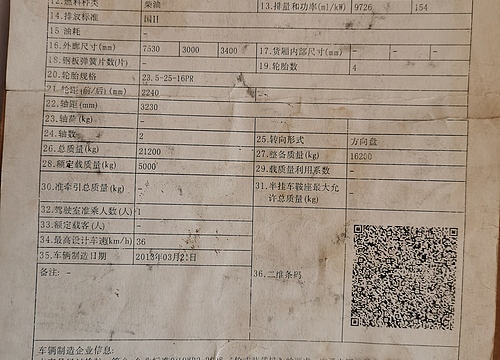 12.燃料种类 柴油 13.排量和功率(ml/kW) 9726 154
14.排放标准 国II
15 油耗 -
16.外廓尺寸(mm) 7530 3000 3400 17.货厢内部尺寸(mm) - - -
18.钢板弹簧片数(片) - 19.轮胎数 4
20.轮胎规格 23.5-25-16PR
21.轮距(前/后)(mm) 2240 --
22.轴距(mm) 3230
23.轴荷(kg) -
24.轴数 2 25.转向形式 方向盘
26.总质量(kg) 21200 27.整备质量(kg) 16200
28.额定载质量(kg) 5000 29.载质量利用系数 -
30.准牵引总质量(kg) - 31.半挂车鞍座最大允许总质量(kg) -
32.驾驶室准乘人数(人) 1
33.额定载客(人) -
34.最高设计车速(km/h) 36
35.车辆制造日期
备注: - 36.二维条码
车辆制造企业信息: